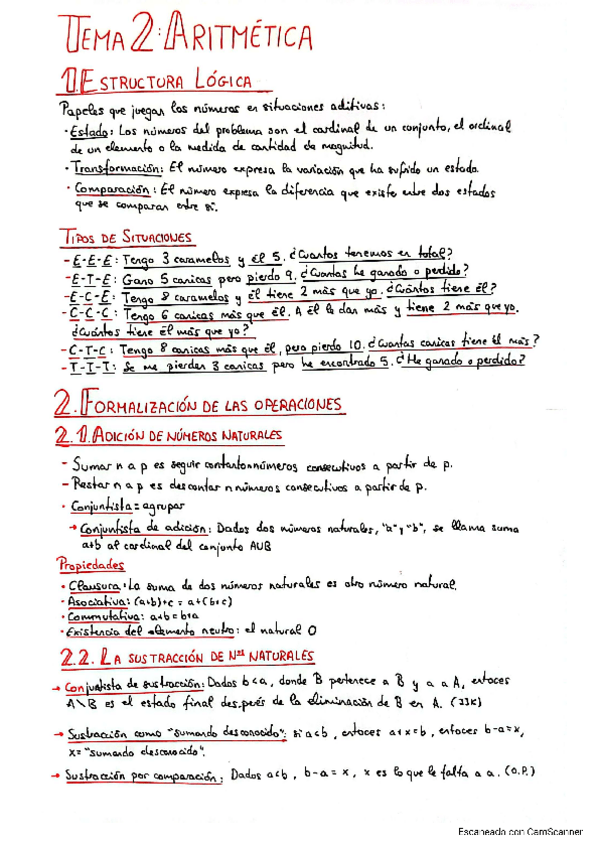 TEMA 2: ARITMÉTICA
1. ESTRUCTURA LÓGICA
Papeles que juegan los números en situaciones aditivas:
· Estado: Los números del problema son el cardinal de un conjunto, el ordinal
de un elemento o la medida de cantidad de magnitud.
· Transformación: El número expresa la variación que ha sufrido un estado.
· Comparación: El número expresa la diferencia que existe entre dos estados
que se comparan entre sí.
TIPOS DE SITUACIONES
- E-E-E: Tengo 3 caramelos y él 5. ¿Cuantos tenemos en total?
- E-T-E: Gano 5 canicas pero pierdo 9. ¿Cuantas he ganado o perdido?
- E-C-E: Tengo 8 caramelos y él tiene 2 más que yo. ¿Cuántos tiene él?
- C-C-C: Tengo 6 canicas más que él. A él le dan más y tiene 2 más que yo.
¿Cuántos tiene él más que yo?
- C-T-C: Tengo 8 canicas más que él, pero pierdo 10. ¿Cuantas canicas tiene él más?
- T-T-T: Se me pierden 3 canicas pero he encontrado 5. ¿He ganado o perdido?
2. FORMALIZACIÓN DE LAS OPERACIONES
2.1. ADICIÓN DE NÚMEROS NATURALES
- Sumar n a p es seguir contando n números consecutivos a partir de p.
- Restar n a p es descontar n números consecutivos a partir de p.
· Conjuntista = agrupar
→ Conjuntista de adición: Dados dos números naturales, "a" y "b", se llama suma
a+b al cardinal del conjunto AUB
Propiedades
· Clausura: La suma de dos números naturales es otro número natural.
· Asociativa: (a+b)+c = a+(b+c)
· Conmutativa: a+b = b+a
· Existencia del elemento neutro: el natural 0
2.2. LA SUSTRACCIÓN DE Nos NATURALES
→ Conjuntista de sustracción: Dados b<a, donde B pertenece a B y a a A, entoces
A\B es el estado final después de la eliminación de B en A. (JJK)
→ Sustracción como "sumando desconocido": si a<b, entoces a+x=b, entoces b-a=x,
x= "sumando desconocido".
→ Sustracción por comparación: Dados a<b, b-a = x, x es lo que le falta a a. (O.P.)
Escaneado con CamScanner